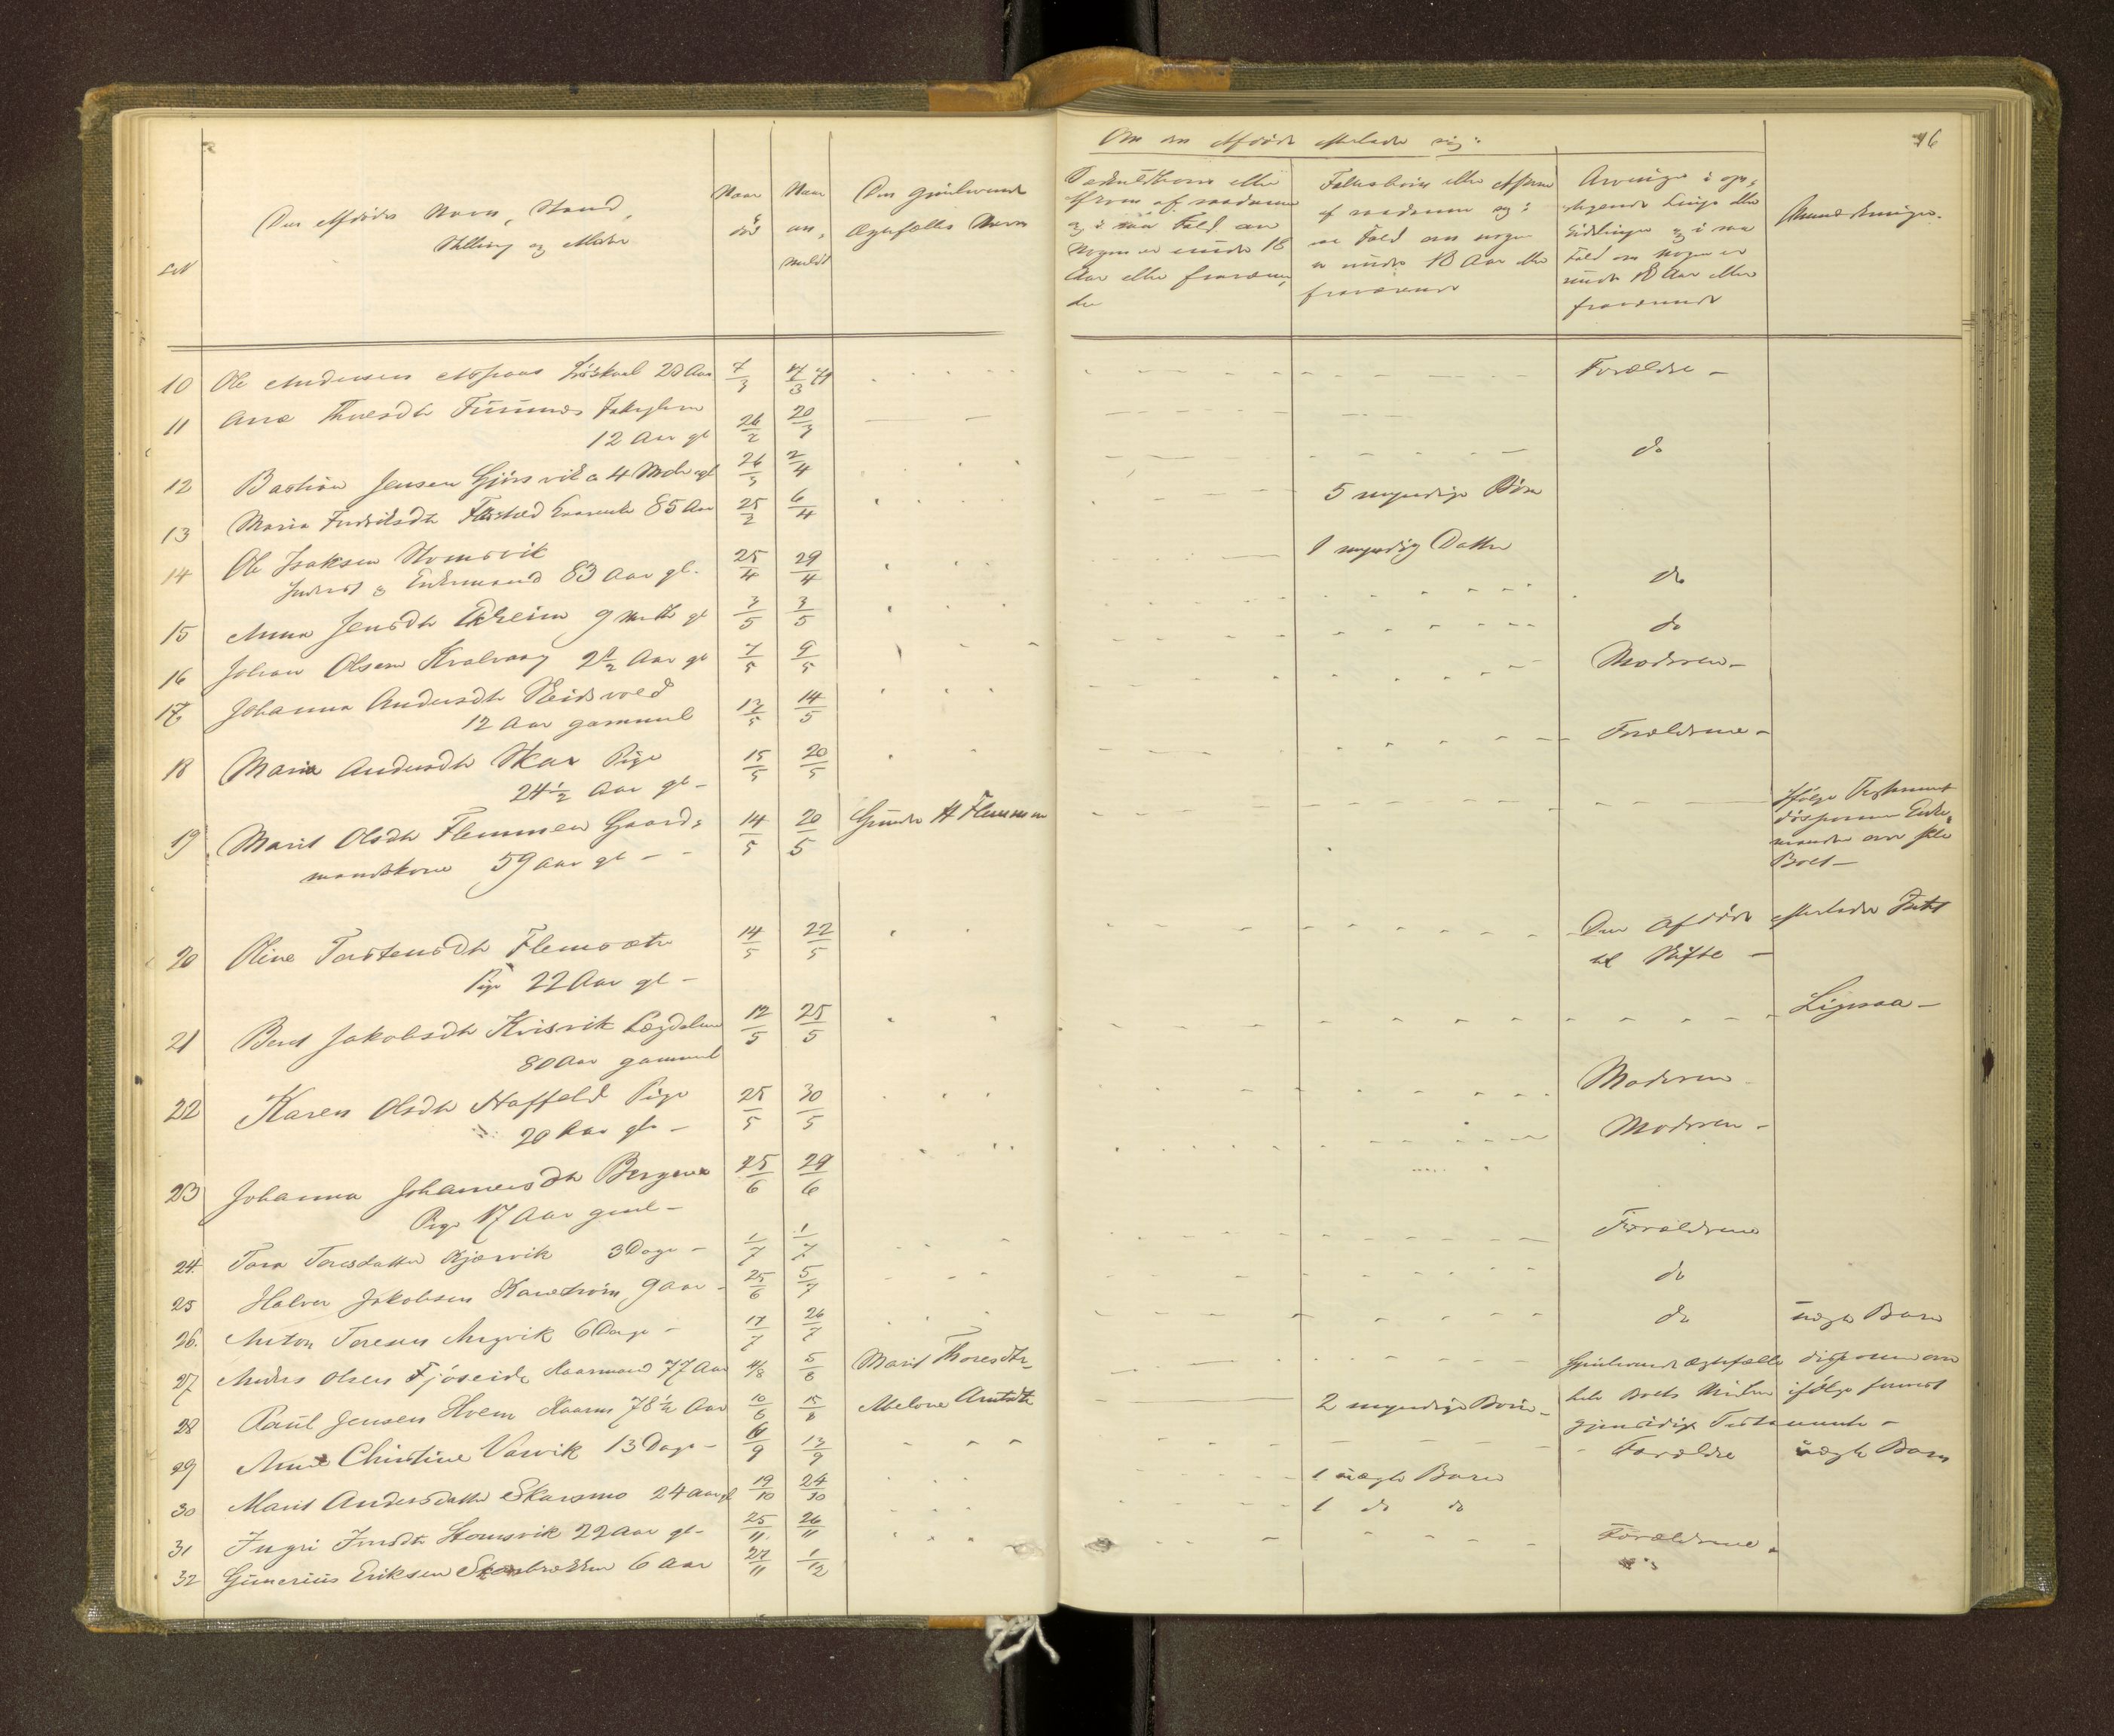 Om den Afdøde efterlader sig:
16
Den Afdødes Navn, Stand,
Stilling og Alder
Naar
død
Naar
an,
meldt
Den gjenlevende
Ægtefælles Navn
eller
Afkom af saadanne
og i saa Fald om
Nogen er under 18
Aar eller fraværen,
de
eller Afkom
af saadanne og i
saa Fald om nogen
er under 18 Aar eller
fraværende
Arvinger i op,
stigende Linje eller
Sidelinjen og i saa
Fald om nogen er
under 18 Aar eller
fraværende
Anmærkninger.
10 Ole Andersen 7/3 Forældre -
11 26/2 20/3
12 Aar gl do
12 Bastian Jensen Gjørsvik a 4 Mdr gl 26/3 2/4
13 Maria 85 Aar 25/2 6/4 5 myndige Børn
14 Ole Isaksen Stomsvik 25/4 29/4 1 myndig Datter
Enkemand 83 Aar gl.
15 Anna Jensdtr 9 Mdr gl 3/5 3/5 do
16 Johan Olsen Kvalvaag 2½ Aar gl 7/5 9/5 do
17 Johanna Andersdtr Eidsvold 13/5 14/5 Moderen -
12 Aar gammel
18 Maria Andersdtr Skar Pige 15/5 20/5 Forældrene -
24½ Aar gl -
19 Marit Olsdtr Flemmen Gaard, 14/5 20/5 Gunder H Flemmen
mandskone 59 Aar gl - -
Ifølge Testament
disponerer Enke,
manden over
Boet -
20 Oline Torstensdtr Flemsæter 14/5 22/5 Den Afdøde efterlader Intet
Pige 22 Aar gl - til Skifte -
21 Beret Jakobsdtr Kvisvik Lægdslem 12/5 25/5 Ligesaa -
80 Aar gammel
22 Karen Olsdtr Staffeld Pige 25/5 30/5 Moderen -
20 Aar gl -
23 Johanna Johannesdtr Bergem 25/6 29/6 Moderen -
Pige 17 Aar gml -
24. Tora Toresdatter 3 Dage - 1/7 1/7 Forældrene
25 Halvor Jakobsen 9 Aar - 25/6 5/7 do
26. Anton Toresen 6 Dage - 17/7 26/7 do uægte Barn
27 Anders Olsen Fjøseide Kaarmand 77 Aar 4/8 5/8 Marit Thoresdtr Gjenlevende Ægtefælle disponerer over
28 Paul Jensen Hvem Kaarm 78½ Aar 10/6 15/8 2 myndige Børn hele Boets Midler ifølge
gjensidige Testamente -
29 Anne Christine Varvik 13 Dage - 6/9 13/9 Forældre uægte Barn
30 Marit Andersdatter Skarsmo 24 Aar gl 19/10 24/10 1 uægte Barn
31 Ingri Stomsvik 22 Aar gl - 25/11 26/11 1 do do
32 Gunerius Eriksen 6 Aar 27/11 1/12 Forældrene.